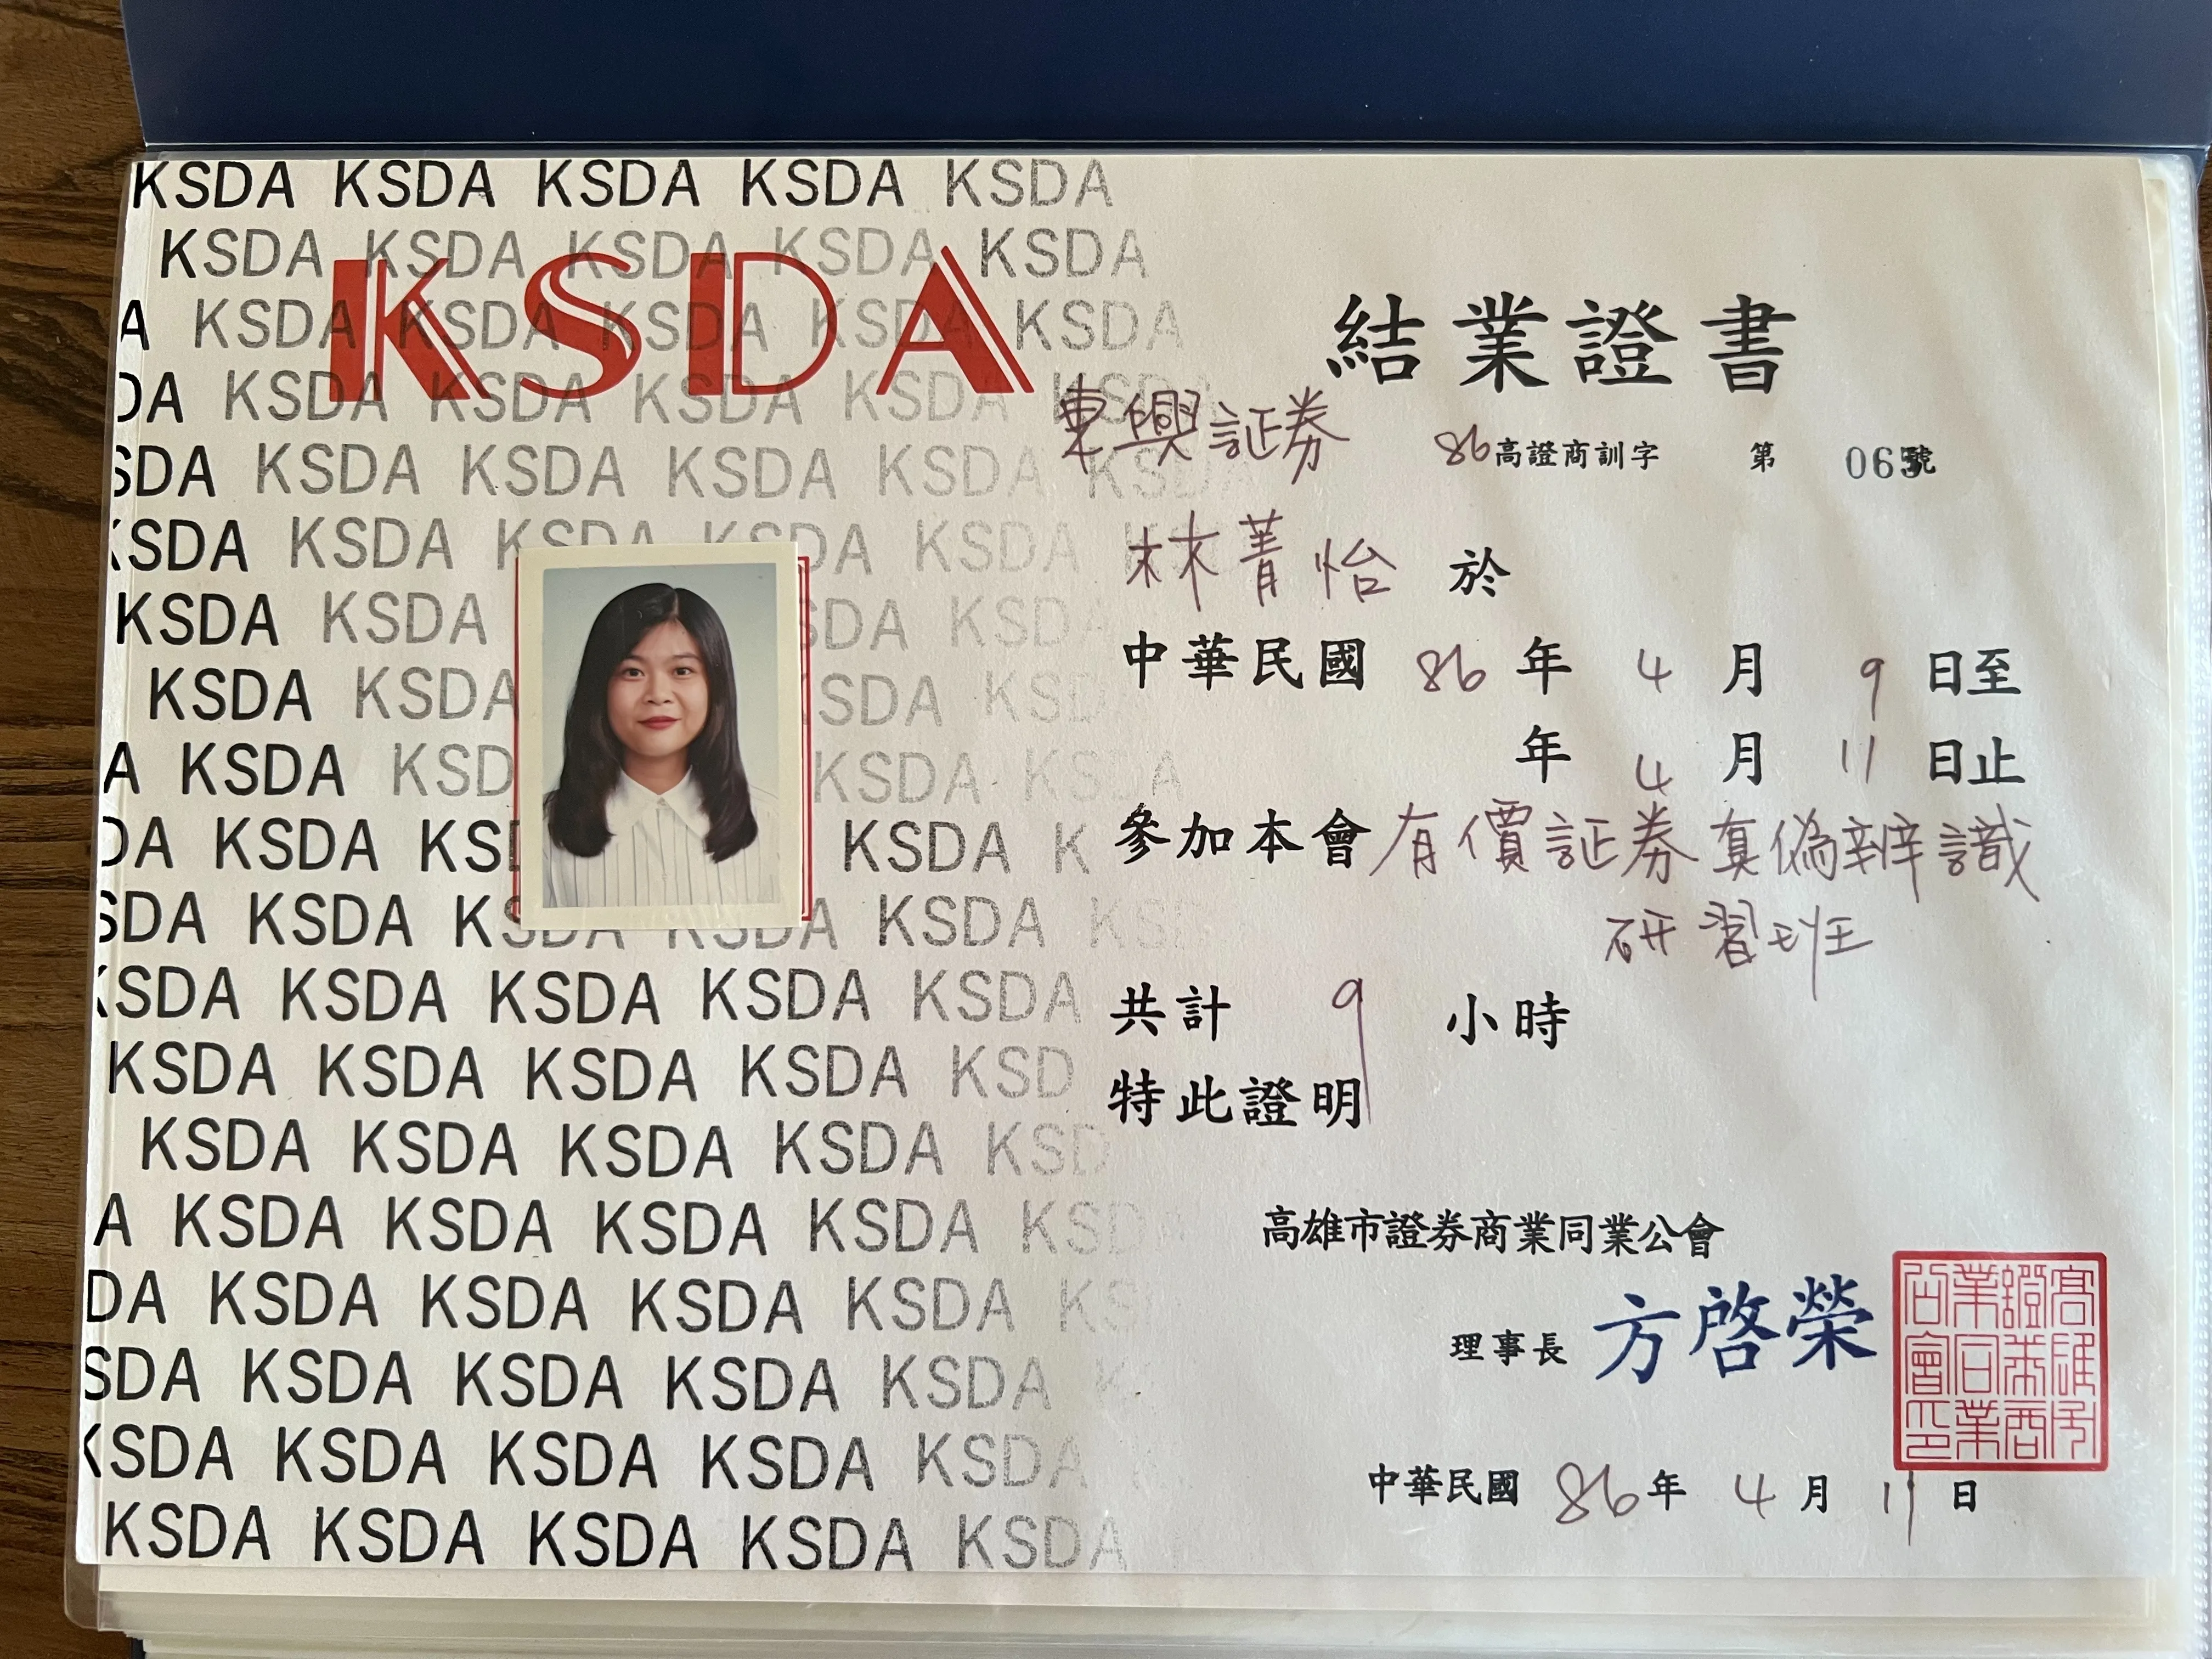 KSDA KSDA KSDA KSDA KSDA
KSDA KSDA KSDA KSDA KSDA
KSDA
A KSDA KSDA KSDA KSDA KSDA
DA KSDA KSDA KSDA KSDA
SDA KSDA KSDA KSDA KSDA
KSDA KSDA KSDA
KSDA KSDA SDA
KSDA KSDA SDA
A KSDA KSD KSDA
DA KSDA KS KSDA K
SDA KSDA KSDA KSDA KSDA
KSDA KSDA KSDA KSDA KSDA
KSDA KSDA KSDA KSDA KSD
KSDA KSDA KSDA KSDA KSD
A KSDA KSDA KSDA KSDA KSD
DA KSDA KSDA KSDA KSDA KS
SDA KSDA KSDA KSDA KSDA
KSDA KSDA KSDA KSDA KSDA
KSDA KSDA KSDA KSDA KSDA
結業證書
東興証券 86高證商訓字 第 號
林菁怡 於
中華民國 86 年 4 月 9 日至
年 4 月 11 日止
參加本會有價証券真偽辨識
研習班
共計 9 小時
特此證明
高雄市證券商業同業公會
理事長 方啓榮
高雄市
證券商
業同業
公會印
中華民國 86 年 4 月 11 日